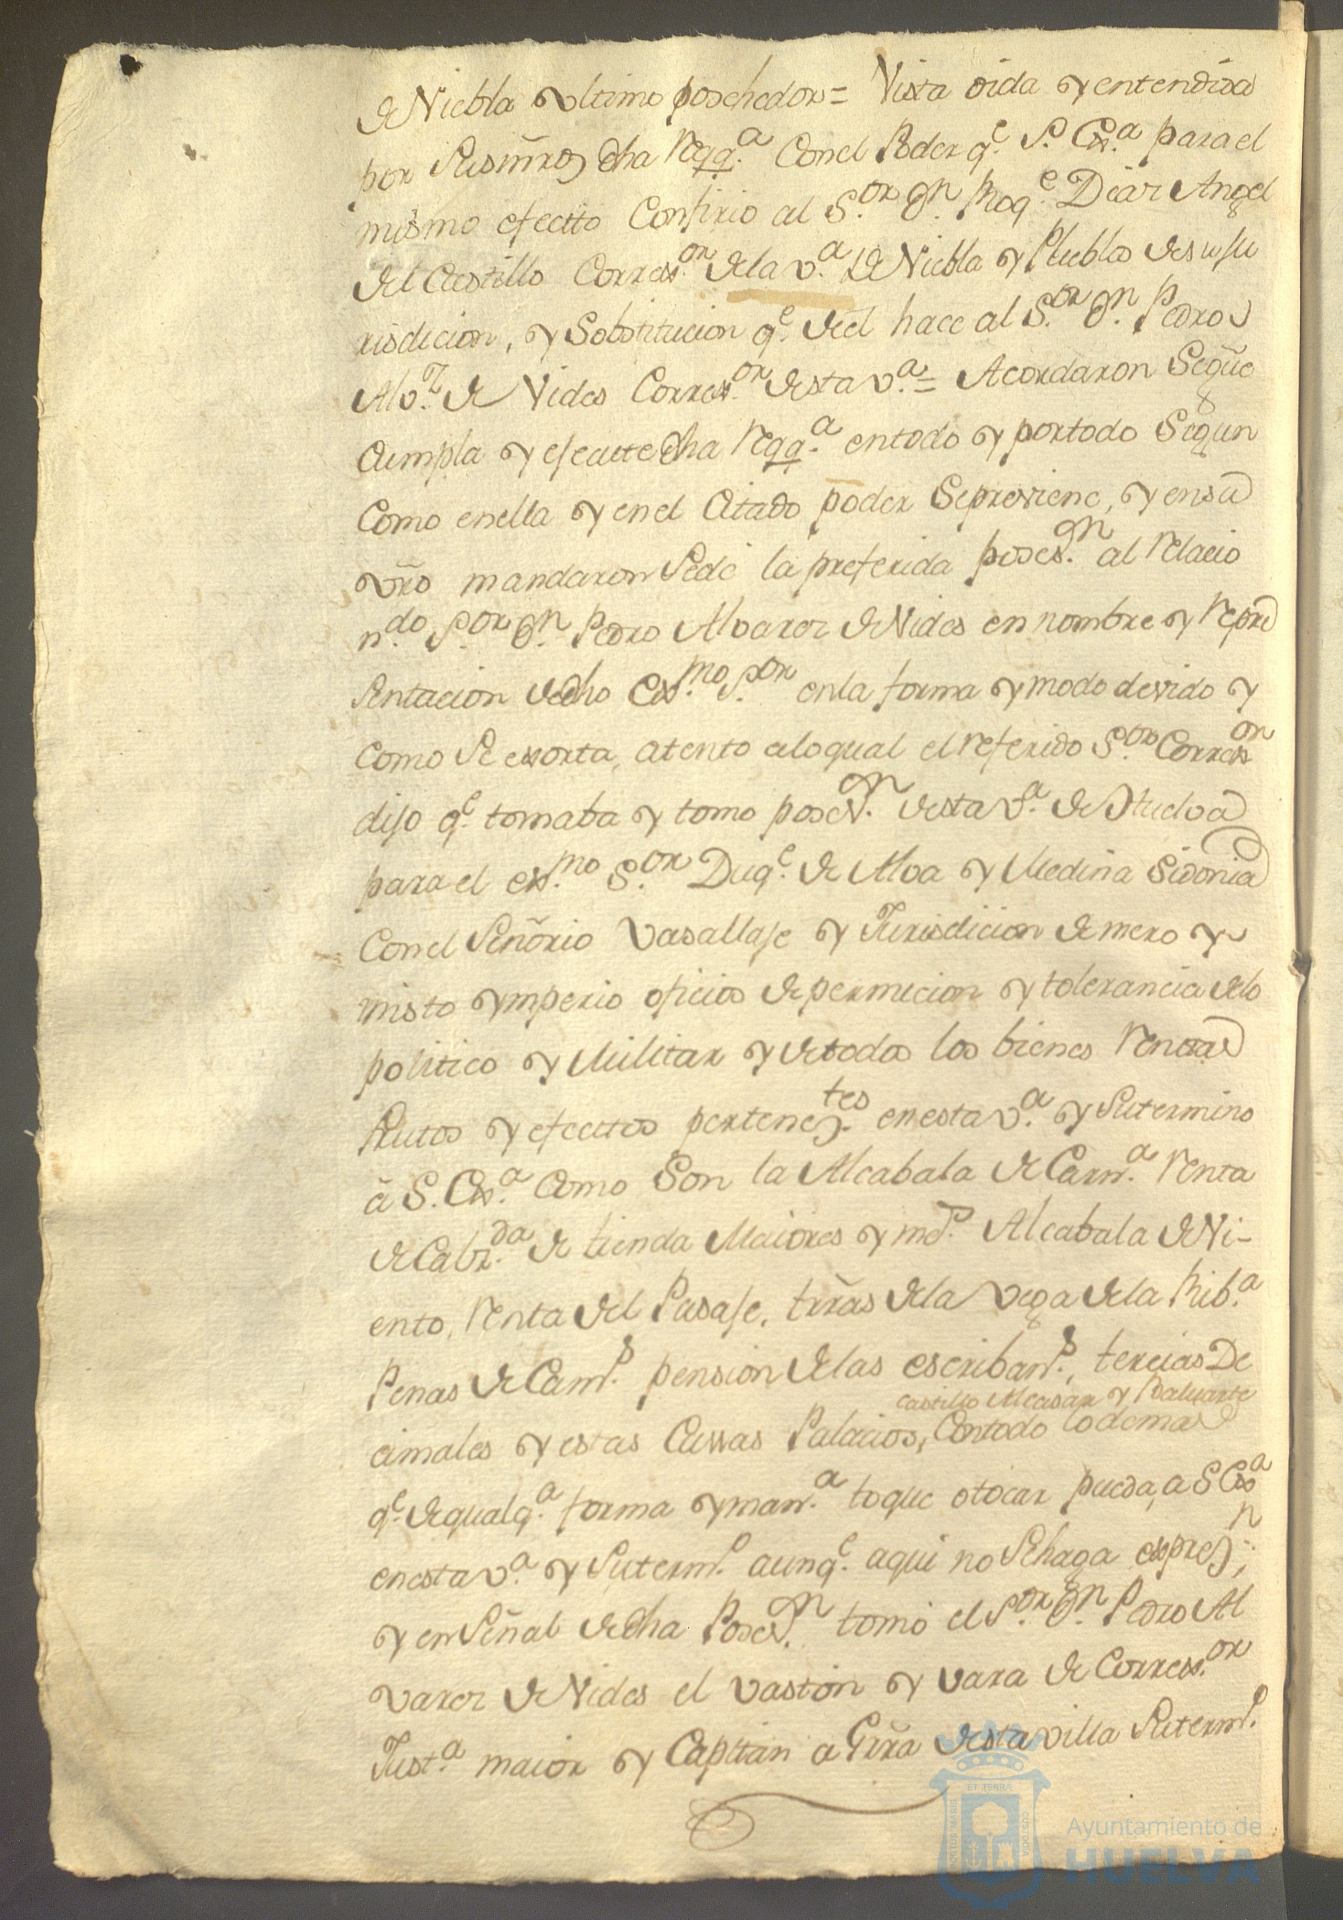 de Niebla ultimo poshehedor = Vista oida y entendida
por Susmrŝ dha Reqq.ª Con el Poder q.e S. Ex.ª para el
mismo efectto Confirio al S.or d.n Roq.e Diaz Angel
del Castillo Corres.or de la v.ª de Niebla y Pueblos de su Ju
risdicion, y Sobstitucion q.e de el hace al S.or d.n Pedro
Alv.z de Nides Corres.or desta v.ª = Acordaron Segûe
Cumpla y efecutte dha Reqq.ª en todo y por todo Segun
Como en ella y en el Citado poder Se previene, y en su
vr̃o mandaron Se dé la preferida poses.on al Relacio
n.do S.or d.n Pedro Alvarez de Nides en nombre y Repre
sentacion de dho Ex.mo S.or en la forma y modo devido y
Como Se exorta, atento a lo qual el referido S.or Corres.or
dijo q.e tomaba y tomo poses.on desta v.ª de Huelva
para el ex.mo S.or Duq.e de Alva y Medina Sidonia
Con el Señorio Vasallaje y Jurisdicion de mero y
misto ymperio oficios de permicion y tolerancia de lo
politico y Militar y de todos los bienes Rentas
frutos y efecttos pertenez.tes en esta v.ª y Su termino
â S. Ex.ª Como Son la Alcabala de Carn.ª Renta
de Cabz.da de tienda Maiores y mer.s Alcabala de Vi-
ento, Renta del Pasaje, trr̃as de la Vega de la Rib.ª
Penas de Cam.s pension de las escriban.s, tercias De
castillo Alcasar y Baluarte
cimales y estas Cassas Palacios, Con todo lo demas
q.e de qualq.ª forma y man.ª toque o tocar pueda, a S Ex.ª
en esta v.ª y Su term.o aunq.e aqui no Se haga espres.n;
y en Señal de dha Poses.on tomó el S.or d.n Pedro Al
varez de Nides el vastón y vara de Corres.or
Just.ª maior y Capitan a Grr̃a desta villa Su term.o
Ayuntamiento de
HUELVA